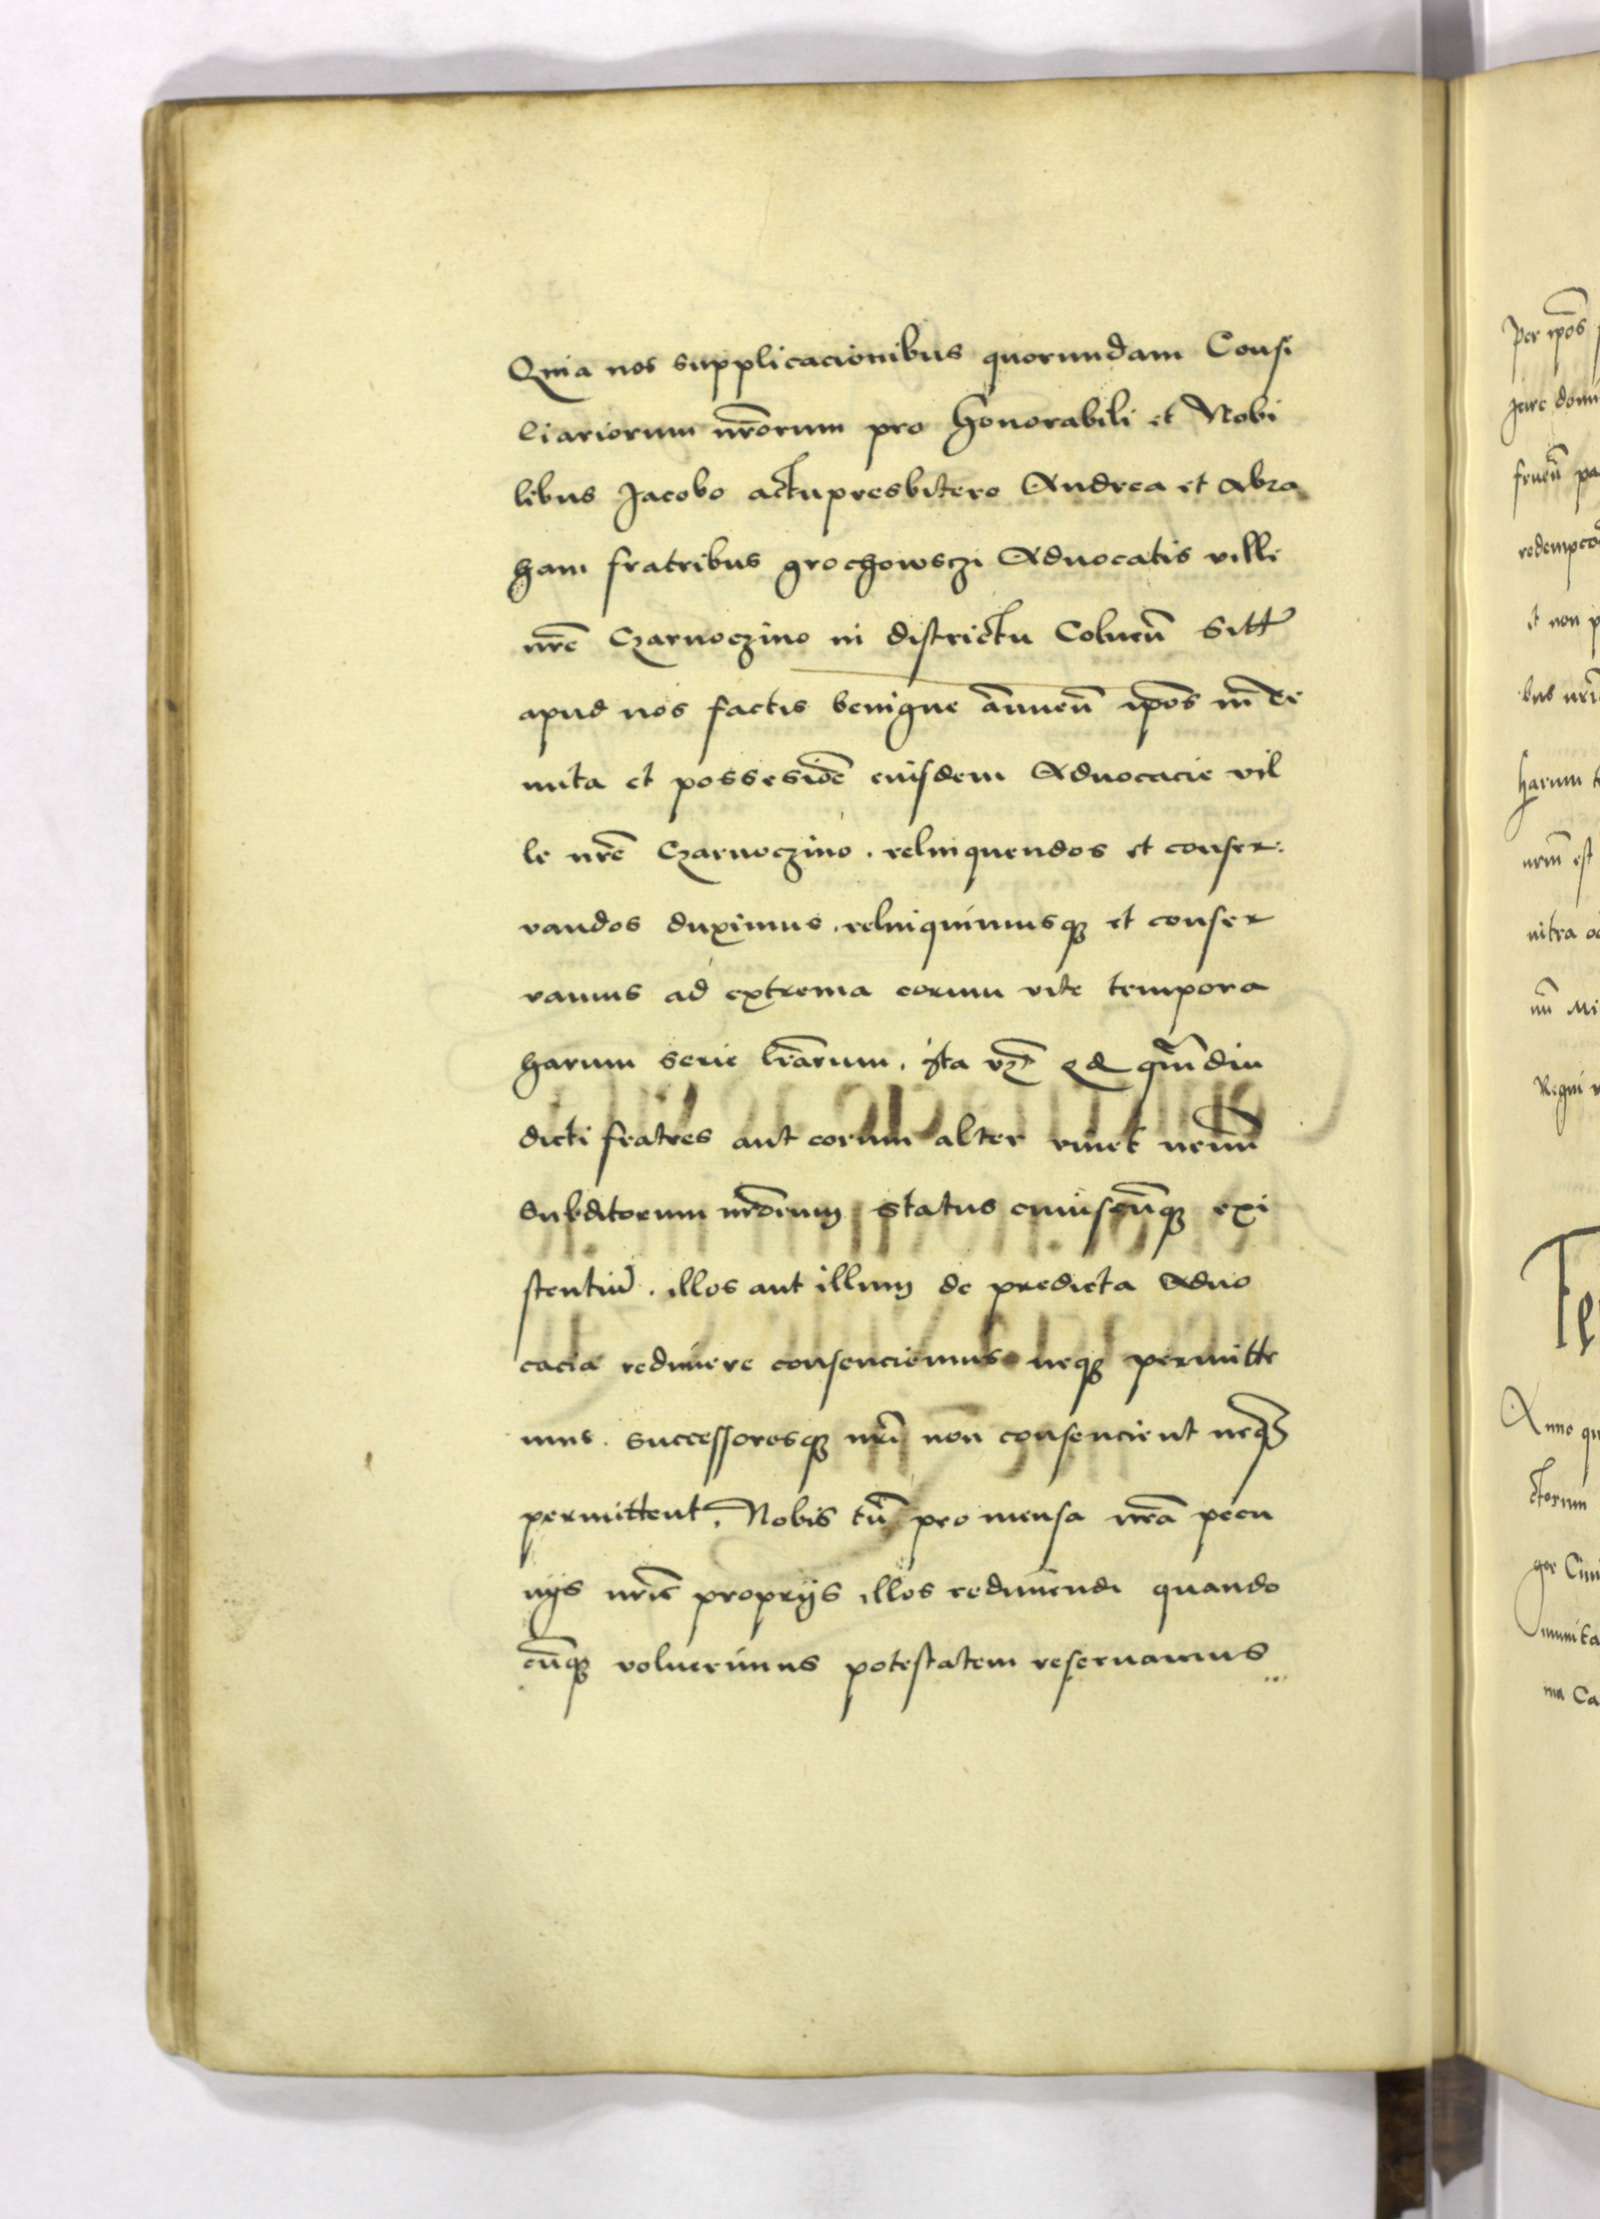 Quia nos supplicacionibus quorundam Consi
liariorum nr̃orum pro honorabili et Nobi
libus Jacobo actupresbitero Andrea et Abra
ham fratribus grochowsczi Aduocatis ville
nr̃e Czarnoczino in districtu Coluen̄ Sitt̃
apud nos factis benigne annuen̄ ip̄os in te
nuta et possesiōe euisdem Aduocacie vil
le nr̃e Czarnoczino . relinquendos et conser
vandos duximus . relinquimusq̃ et conser
vamus ad extrema eorum vite tempora
harum serie lr̃arum . Ita vz̃ qd qm̄diu
dicti fratres aut eorum alter viuet nemini
Subditorum nr̃orum status cuiuscūq̃ exi
stentiū . illos aut illum de predicta Aduo
cacia redimere consenciemus neq̃ permitte
mus . successoresq̃ nr̃i non consencient neq̃
permittent . Nobis tn̄ pro mensa nr̃a pecu
nijs nr̃is proprijs illos redimendi quando
cūq̃ voluerimus potestatem reseruamus
Per ip̄os
redempco
et non
harum
Regni
Anno
ctorum